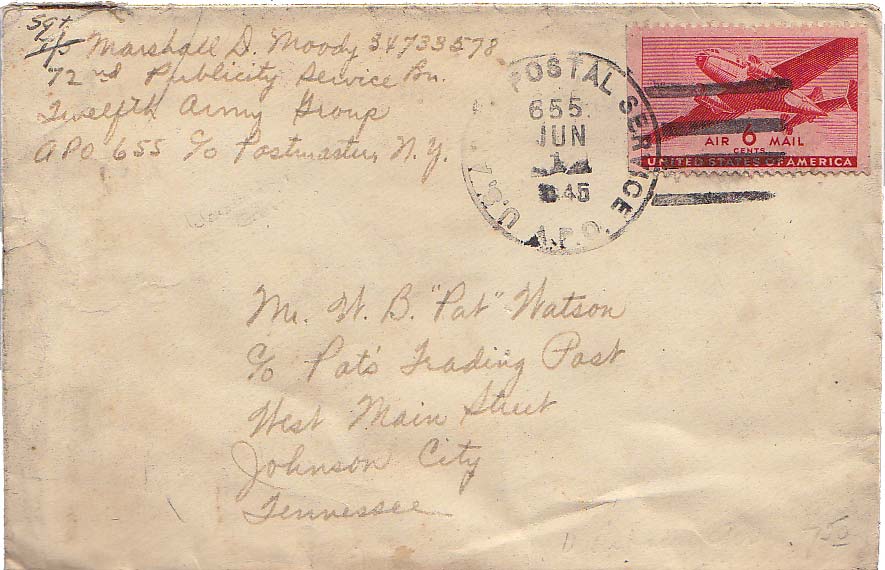 Sgt
T/5 Marshall D. Moody 34733578
72nd Publicity Service Bn.
Twelfth Army Group
APO 655 c/o Postmaster, N.Y.
U.S. POSTAL SERVICE
655
JUN
1
1945
A.P.O.
AIR 6 MAIL
CENTS
UNITED STATES OF AMERICA
Mr. W. B. "Pat" Watson
c/o Pat's Trading Post
West Main Street
Johnson City
Tennessee
7 50